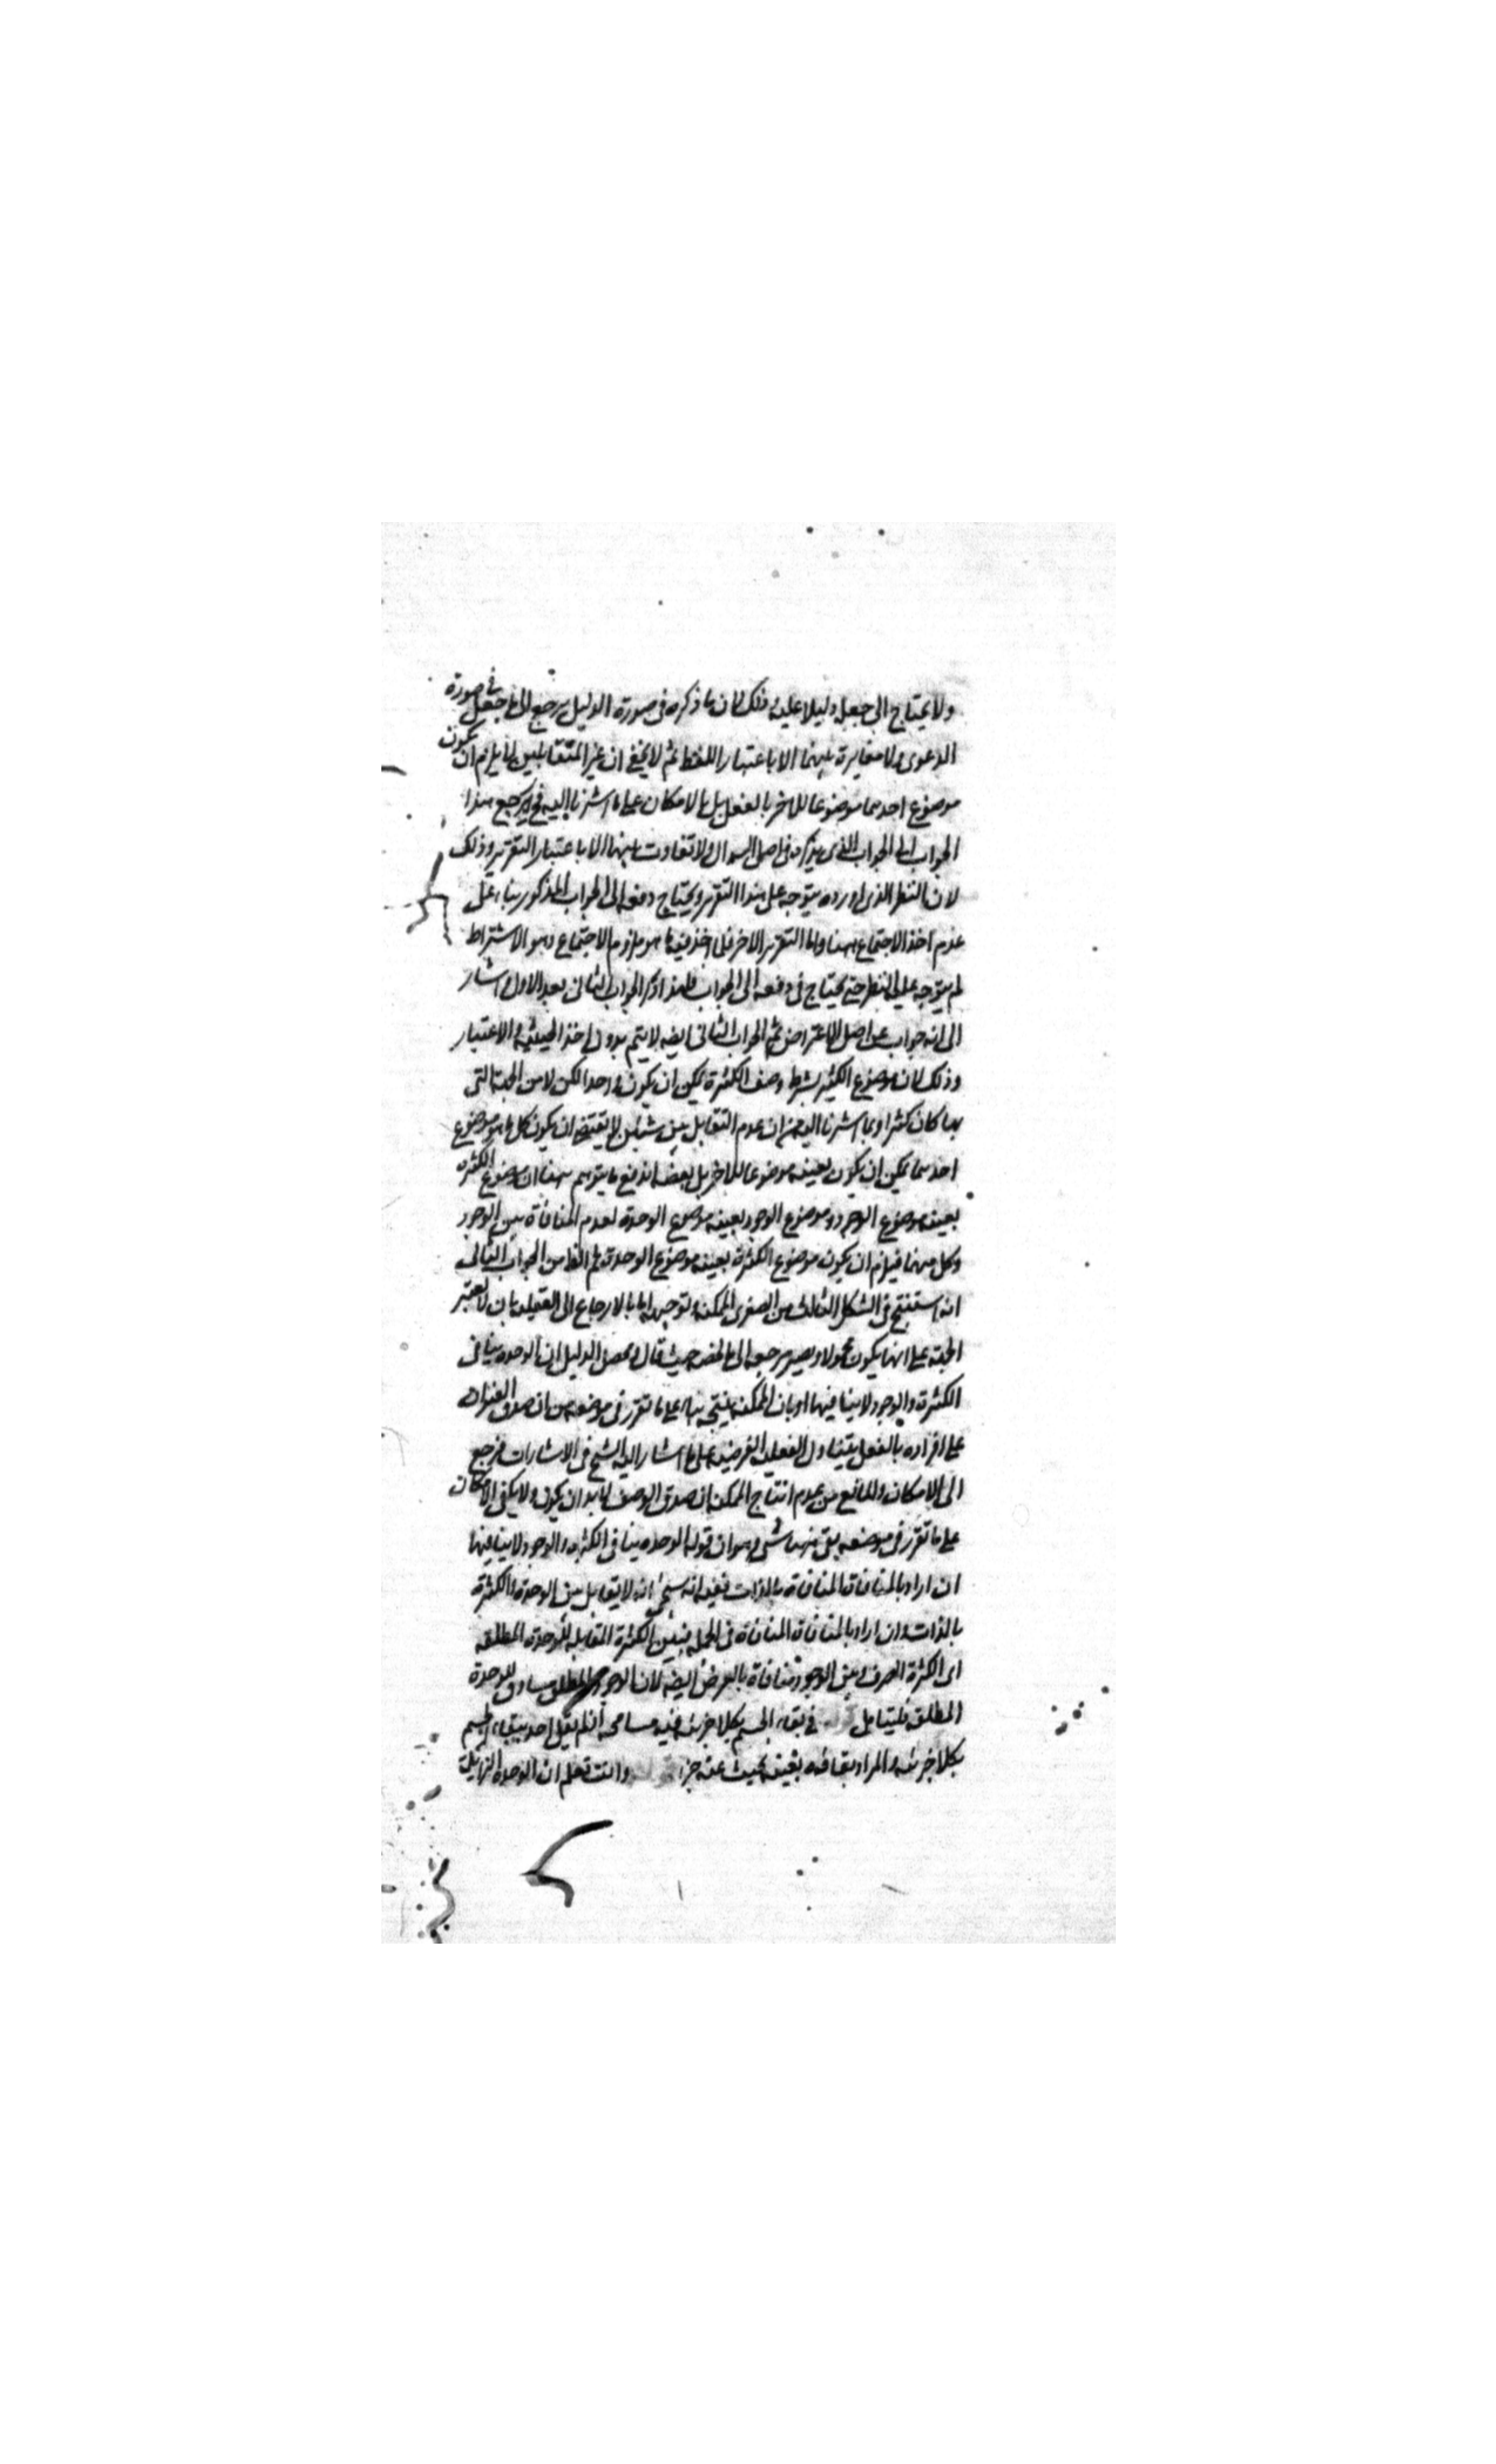 ولا يحتاج الى جعله دليلا عليه وذلك لان ما ذكره فى صورة الدليل يرجع الى ما جعل فى صورة
الدعوى ولا مغايرة بينهما الا باعتبار اللفظ ثم لا يخفى ان غير المتقابلين لا يلزم ان يكون
موضوع احدهما موضوعا للاخر بالفعل بل بالامكان على ما اشرنا اليه فيرجع هذا
الجواب الى الجواب الذى يذكره فى اصل السوال ولا تفاوت بينهما الا باعتبار التقرير وذلك
لان النظر الذى اورده يتوجه على هذا التقرير ويحتاج دفعه الى الجواب المذكور بناء على
عدم اخذ الاجتماع ههنا واما التقرير الاخر فلما اخذ فيه ما هو ملزوم الاجتماع وهو الاشتراط
لم يتوجه عليه النظر حتى يحتاج فى دفعه الى الجواب فلهذا ذكر الجواب الثانى بعد الاول واشار
الى انه جواب عن اصل الاعتراض ثم الجواب الثانى ايضه لا يتم بدون اخذ الحيثية والاعتبار
وذلك لان موضوع الكثير بشرط وصف الكثرة يمكن ان يكون واحدا لكن لا من الجهة التى
بها كان كثيرا وبما اشرنا اليه من ان عدم التقابل بين شيئين لا يقتضى ان يكون كل ما هو موضوع
احدهما يمكن ان يكون بعينه موضوعا للاخر بل بعضه اندفع ما يتوهم ههنا ان موضوع الكثرة
بعينه موضوع الوجود وموضوع الوجود بعينه موضوع الوحدة لعدم المنافاة بين الوجود
وكل منهما فيلزم ان يكون موضوع الكثرة بعينه موضوع الوحدة ثم الظ من الجواب الثانى
انه استنتج فى الشكل الثالث من الصغرى الممكنة وتوجيهه اما بالارجاع الى الفعلية بان لا يعتبر
الجهة على انها يكون محمولا ويصير مرجعه الى ما لخصه حيث قال ومحصل الدليل ان الوحدة ينافى
الكثرة والوجود لا ينافيها او بان الممكنة ينتجه بناء على ما تقرر فى موضعه من ان صدق العنوان
على افراده بالفعل يتناول الفعلية الفرضية على ما اشار اليه الشيخ فى الاشارات فيرجع
الى الامكان والمانع من عدم انتاج الممكن ان صدق الوصف لا بد ان يكون ولا يكفى الامكان
على ما تقرر فى موضعه بقى ههنا شئ وهو ان قوله الوحده ينافى الكثره والوجود لا ينافيها
ان اراد بالمنافاة المنافاة بالذات ففيه انه سيجئ انه لا تقابل بين الوحدة والكثرة
بالذات وان اراد بالمنافاة المنافاة فى الجملة فبين الكثرة المقابله للوحدة المطلقه
اى الكثرة الصرفه وبين الوجود منافاة بالعرض ايضه لان الوجود المطلق مساوق للوحدة
المطلقه فليتامل فى بقاء الجسم بكلا جزئيه فيه مسامحه اذ لم يقل احد ببقاء الجسم
بكلا جزئيه والمراد بقاؤه بعينه بحيث عنه جزء وانت تعلم ان الوحدة الزايلة